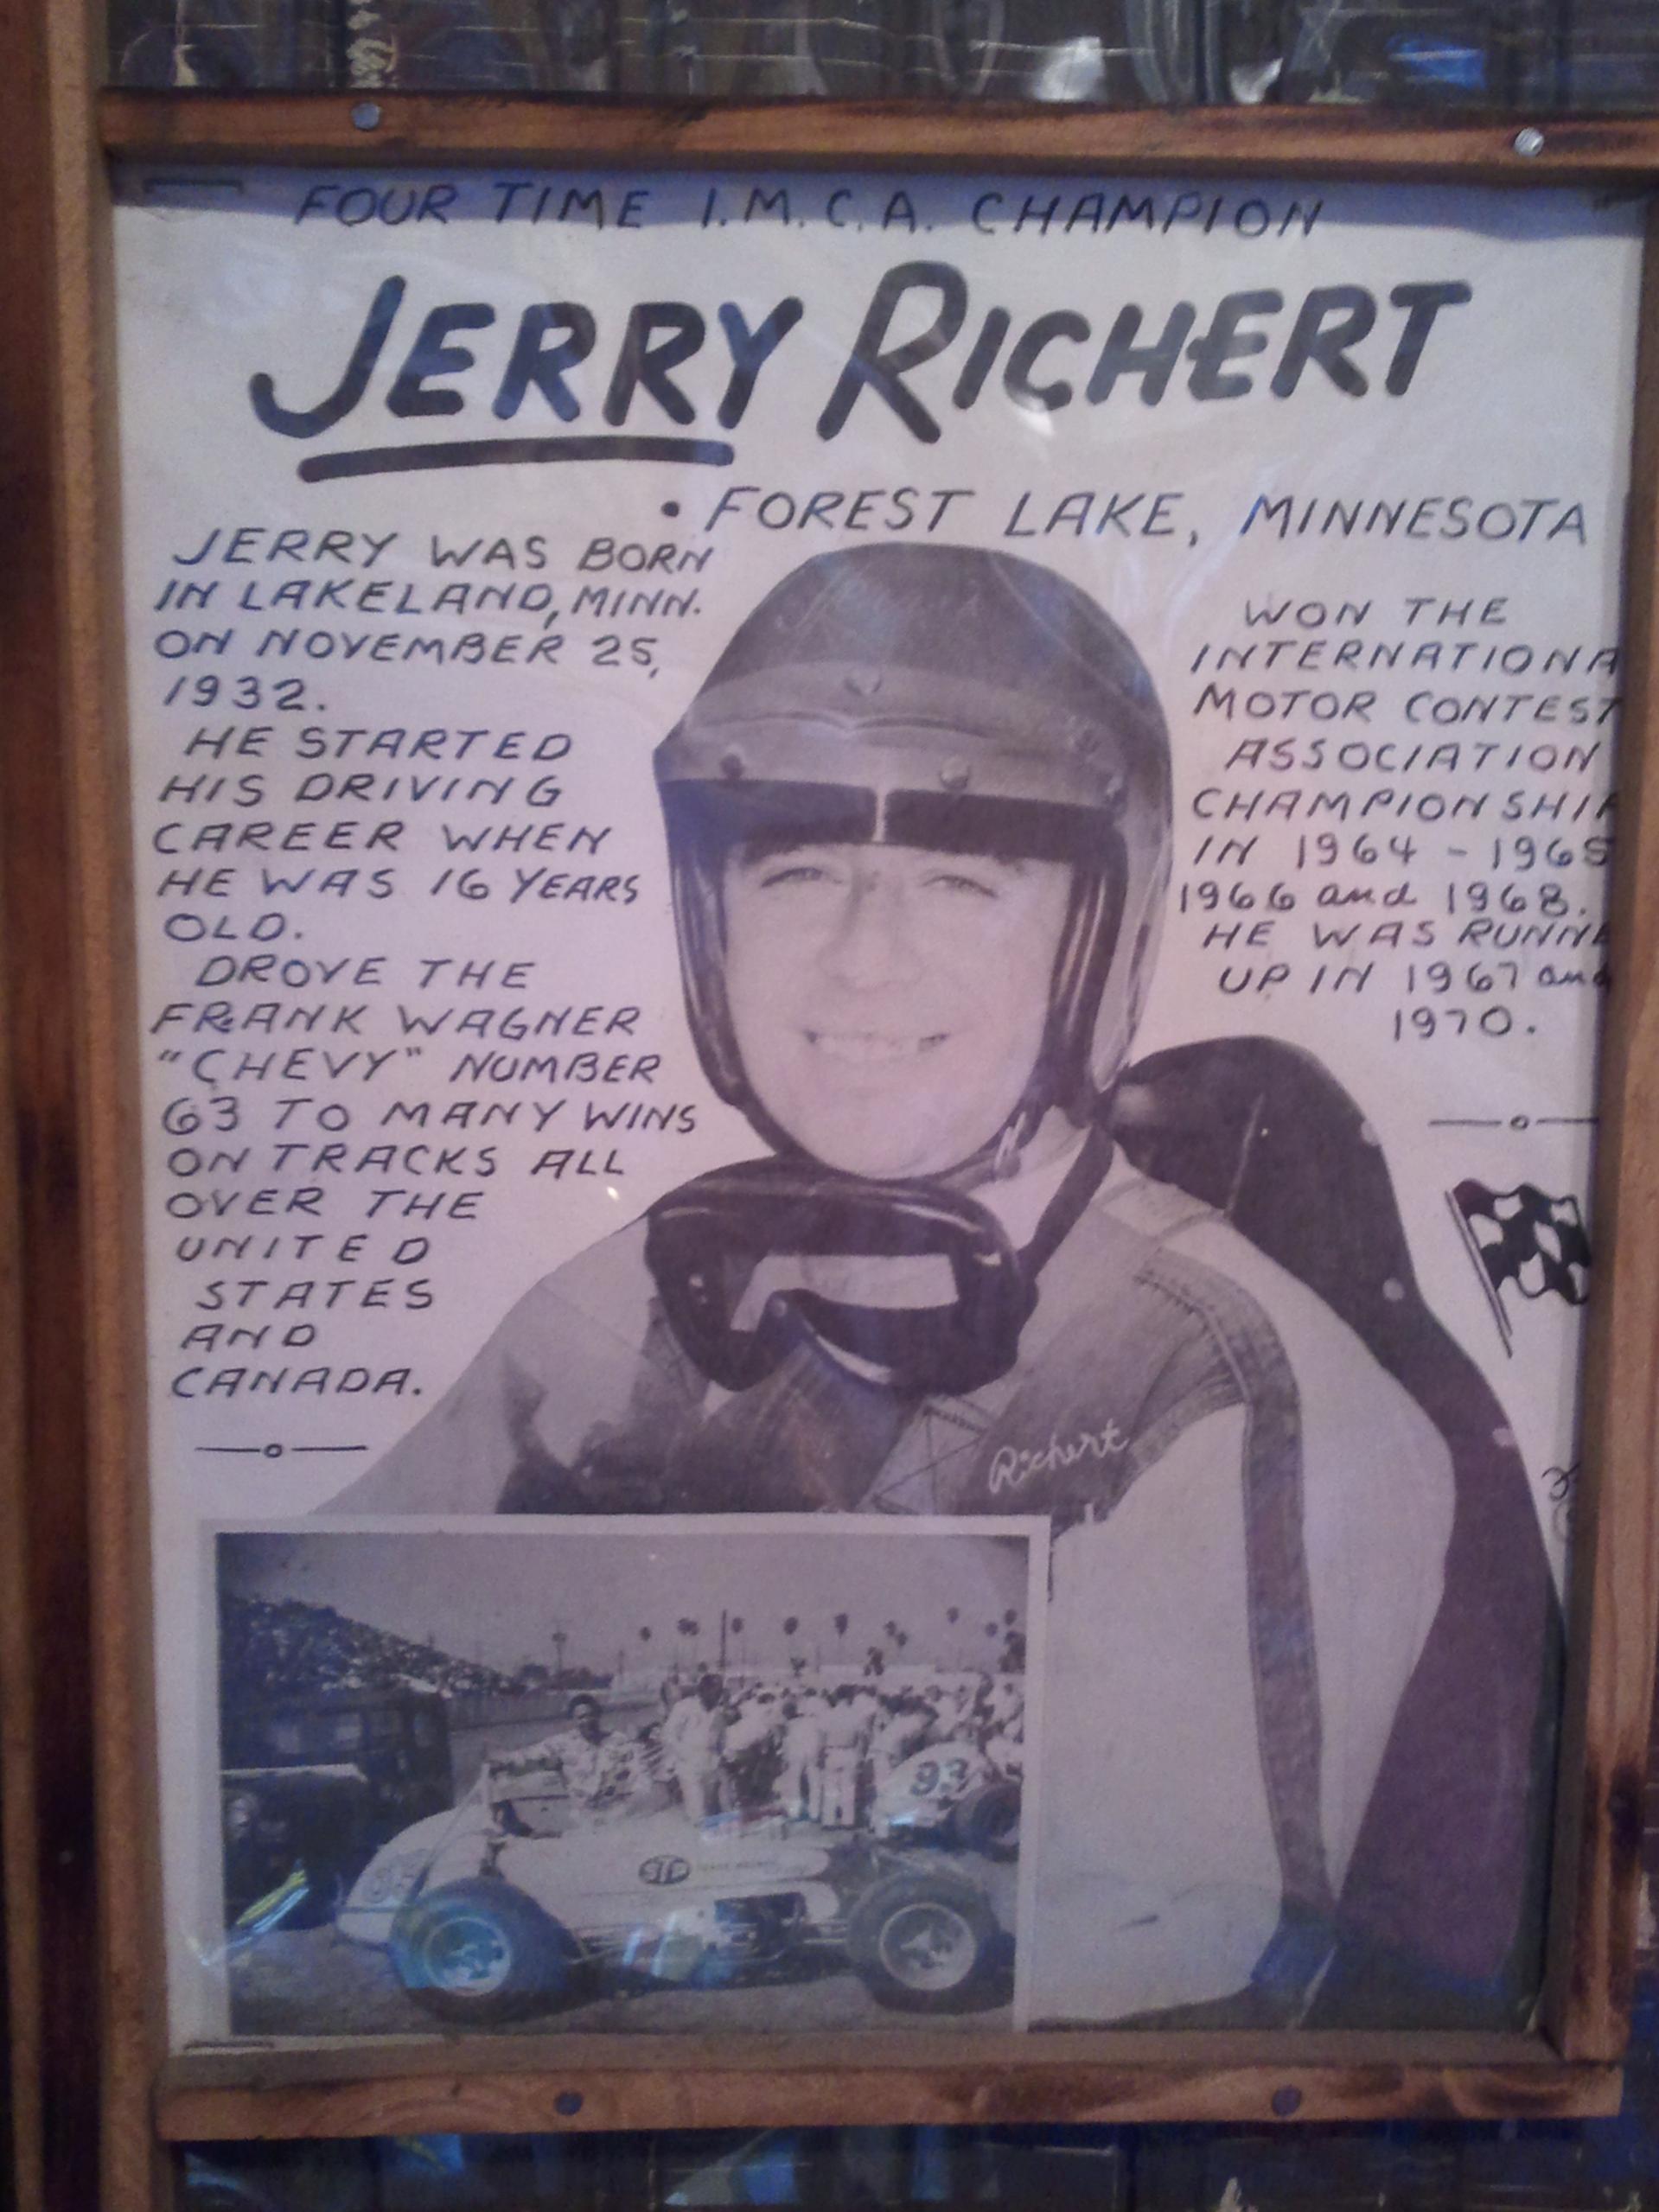 FOUR TIME I.M.C.A. CHAMPION
JERRY RICHERT
• FOREST LAKE, MINNESOTA
JERRY WAS BORN
IN LAKELAND, MINN.
ON NOVEMBER 25,
1932.
HE STARTED
HIS DRIVING
CAREER WHEN
HE WAS 16 YEARS
OLD.
DROVE THE
FRANK WAGNER
"CHEVY" NUMBER
63 TO MANY WINS
ON TRACKS ALL
OVER THE
UNITED
STATES
AND
CANADA.
WON THE
INTERNATIONA
MOTOR CONTEST
ASSOCIATION
CHAMPIONSHIP
IN 1964 - 1965
1966 and 1968.
HE WAS RUNNE
UP IN 1967 and
1970.
Richert
93
STP